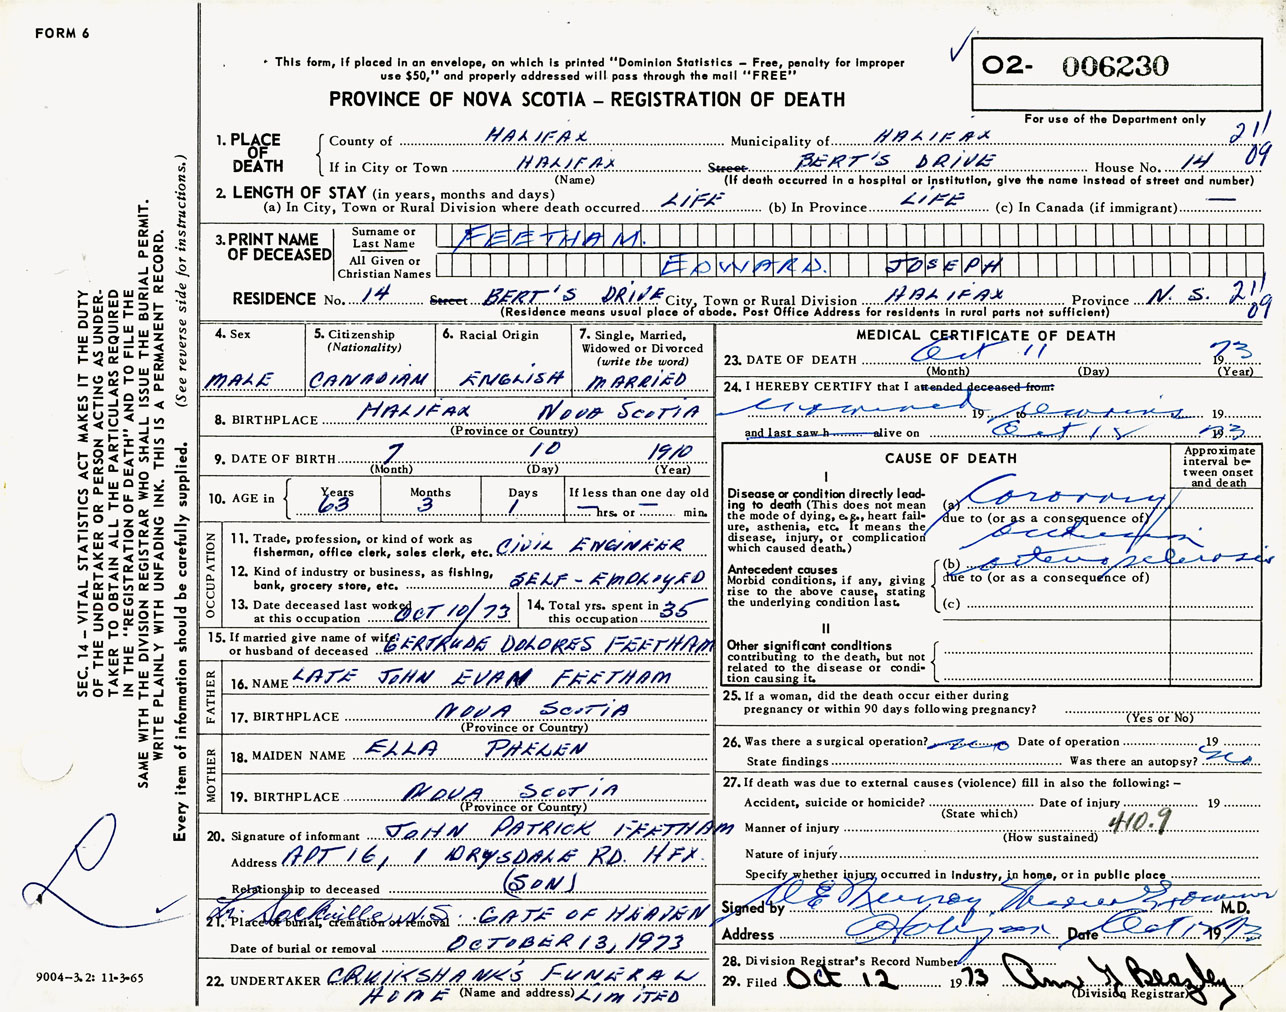 FORM 6
This form, if placed in an envelope, on which is printed "Dominion Statistics – Free, penalty for improper
use $50," and properly addressed will pass through the mail "FREE"
PROVINCE OF NOVA SCOTIA – REGISTRATION OF DEATH
02- 006230
For use of the Department only
1. PLACE OF DEATH County of HALIFAX Municipality of HALIFAX 211
If in City or Town HALIFAX Street BERT'S DRIVE House No. 14 09
(Name) (If death occurred in a hospital or institution, give the name instead of street and number)
2. LENGTH OF STAY (in years, months and days)
(a) In City, Town or Rural Division where death occurred LIFE (b) In Province LIFE (c) In Canada (if immigrant) —
3. PRINT NAME OF DECEASED Surname or Last Name FEETHAM.
All Given or Christian Names EDWARD. JOSEPH
RESIDENCE No. 14 Street BERT'S DRIVE City, Town or Rural Division HALIFAX Province N. S. 211 09
(Residence means usual place of abode. Post Office Address for residents in rural parts not sufficient)
4. Sex MALE
5. Citizenship (Nationality) CANADIAN
6. Racial Origin ENGLISH
7. Single, Married, Widowed or Divorced (write the word) MARRIED
8. BIRTHPLACE HALIFAX NOVA SCOTIA
(Province or Country)
9. DATE OF BIRTH 7 10 1910
(Month) (Day) (Year)
10. AGE in Years 63 Months 3 Days 1 If less than one day old — hrs. or — min.
OCCUPATION
11. Trade, profession, or kind of work as
fisherman, office clerk, sales clerk, etc. CIVIL ENGINEER
12. Kind of industry or business, as fishing,
bank, grocery store, etc. SELF-EMPLOYED
13. Date deceased last worked
at this occupation OCT 10/73
14. Total yrs. spent in
this occupation 35
15. If married give name of wife
or husband of deceased GERTRUDE DOLORES FEETHAM
FATHER
16. NAME LATE JOHN EVAN FEETHAM
17. BIRTHPLACE NOVA SCOTIA
(Province or Country)
MOTHER
18. MAIDEN NAME ELLA PHELEN
19. BIRTHPLACE NOVA SCOTIA
(Province or Country)
20. Signature of informant JOHN PATRICK FEETHAM
Address APT 16, 1 DRYSDALE RD. HFX.
Relationship to deceased (SON)
Sackville N.S. GATE OF HEAVEN
21. Place of burial, cremation or removal
Date of burial or removal OCTOBER 13, 1973
22. UNDERTAKER CRUIKSHANK'S FUNERAL
HOME (Name and address) LIMITED
MEDICAL CERTIFICATE OF DEATH
23. DATE OF DEATH Oct 11 1973
(Month) (Day) (Year)
24. I HEREBY CERTIFY that I attended deceased from:
19 to 19
and last saw h alive on Oct 1973
CAUSE OF DEATH
Approximate interval between onset and death
I
Disease or condition directly leading to death (This does not mean the mode of dying, e.g., heart failure, asthenia, etc. It means the disease, injury, or complication which caused death.)
(a) Coronary
due to (or as a consequence of)
occlusion
Antecedent causes
Morbid conditions, if any, giving rise to the above cause, stating the underlying condition last.
(b) arteriosclerosis
due to (or as a consequence of)
(c)
II
Other significant conditions
contributing to the death, but not related to the disease or condition causing it.
25. If a woman, did the death occur either during
pregnancy or within 90 days following pregnancy?
(Yes or No)
26. Was there a surgical operation? no Date of operation 19
State findings Was there an autopsy? no
27. If death was due to external causes (violence) fill in also the following: –
Accident, suicide or homicide? Date of injury 19
(State which)
Manner of injury 410.9
(How sustained)
Nature of injury
Specify whether injury occurred in Industry, in home, or in public place
Signed by M.D.
Address Halifax Date Oct 1973
28. Division Registrar's Record Number
29. Filed Oct 12 1973
(Division Registrar)
SEC. 14 – VITAL STATISTICS ACT MAKES IT THE DUTY
OF THE UNDERTAKER OR PERSON ACTING AS UNDER-
TAKER TO OBTAIN ALL THE PARTICULARS REQUIRED
IN THE "REGISTRATION OF DEATH" AND TO FILE THE
SAME WITH THE DIVISION REGISTRAR WHO SHALL ISSUE THE BURIAL PERMIT.
WRITE PLAINLY WITH UNFADING INK. THIS IS A PERMANENT RECORD.
Every item of information should be carefully supplied. (See reverse side for instructions.)
9004–3.2: 11-3-65